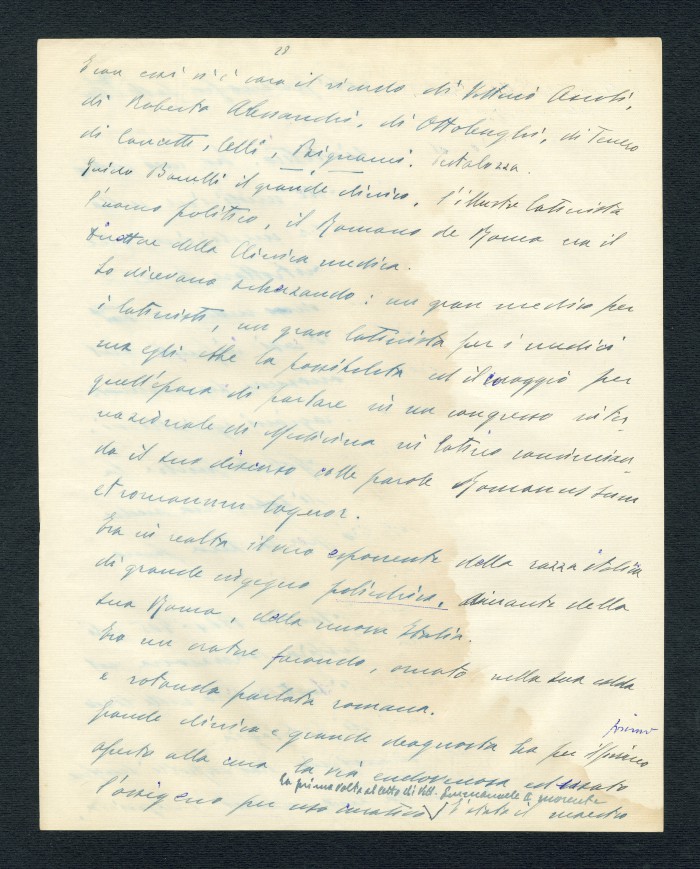 28
così vi è cara il ricordo di Vittorio Ascoli,
di Roberto Alessandri, di Ottolenghi, di
di Concetti, Celli, Bignami.
Guido Bacelli il grande clinico, l'illustre latinista
l'uomo politico, il Romano de Roma era il
Direttore della Clinica medica.
Lo dicevano scherzando: un gran medico per
i latinisti, un gran latinista per i medici
ma egli ebbe la possibilità ed il coraggio per
quell'epoca di parlare in un congresso inter
nazionale di Medicina in latino comincian
do il suo discorso colle parole Romanus sum
et romanum loquor.
Era in realtà il vero esponente della razza italica
di grande ingegno poliedrico, amante della
sua Roma, della nuova Italia.
Era un oratore facondo, ornato nella sua calda
e rotonda parlata romana.
primo
Grande clinico e grande diagnosta ha per il
aperto alla cura la via endovenosa ed usato
la prima volta al letto di Vitt. Emanuele II morente
l'ossigeno per uso curativo È stato il maestro